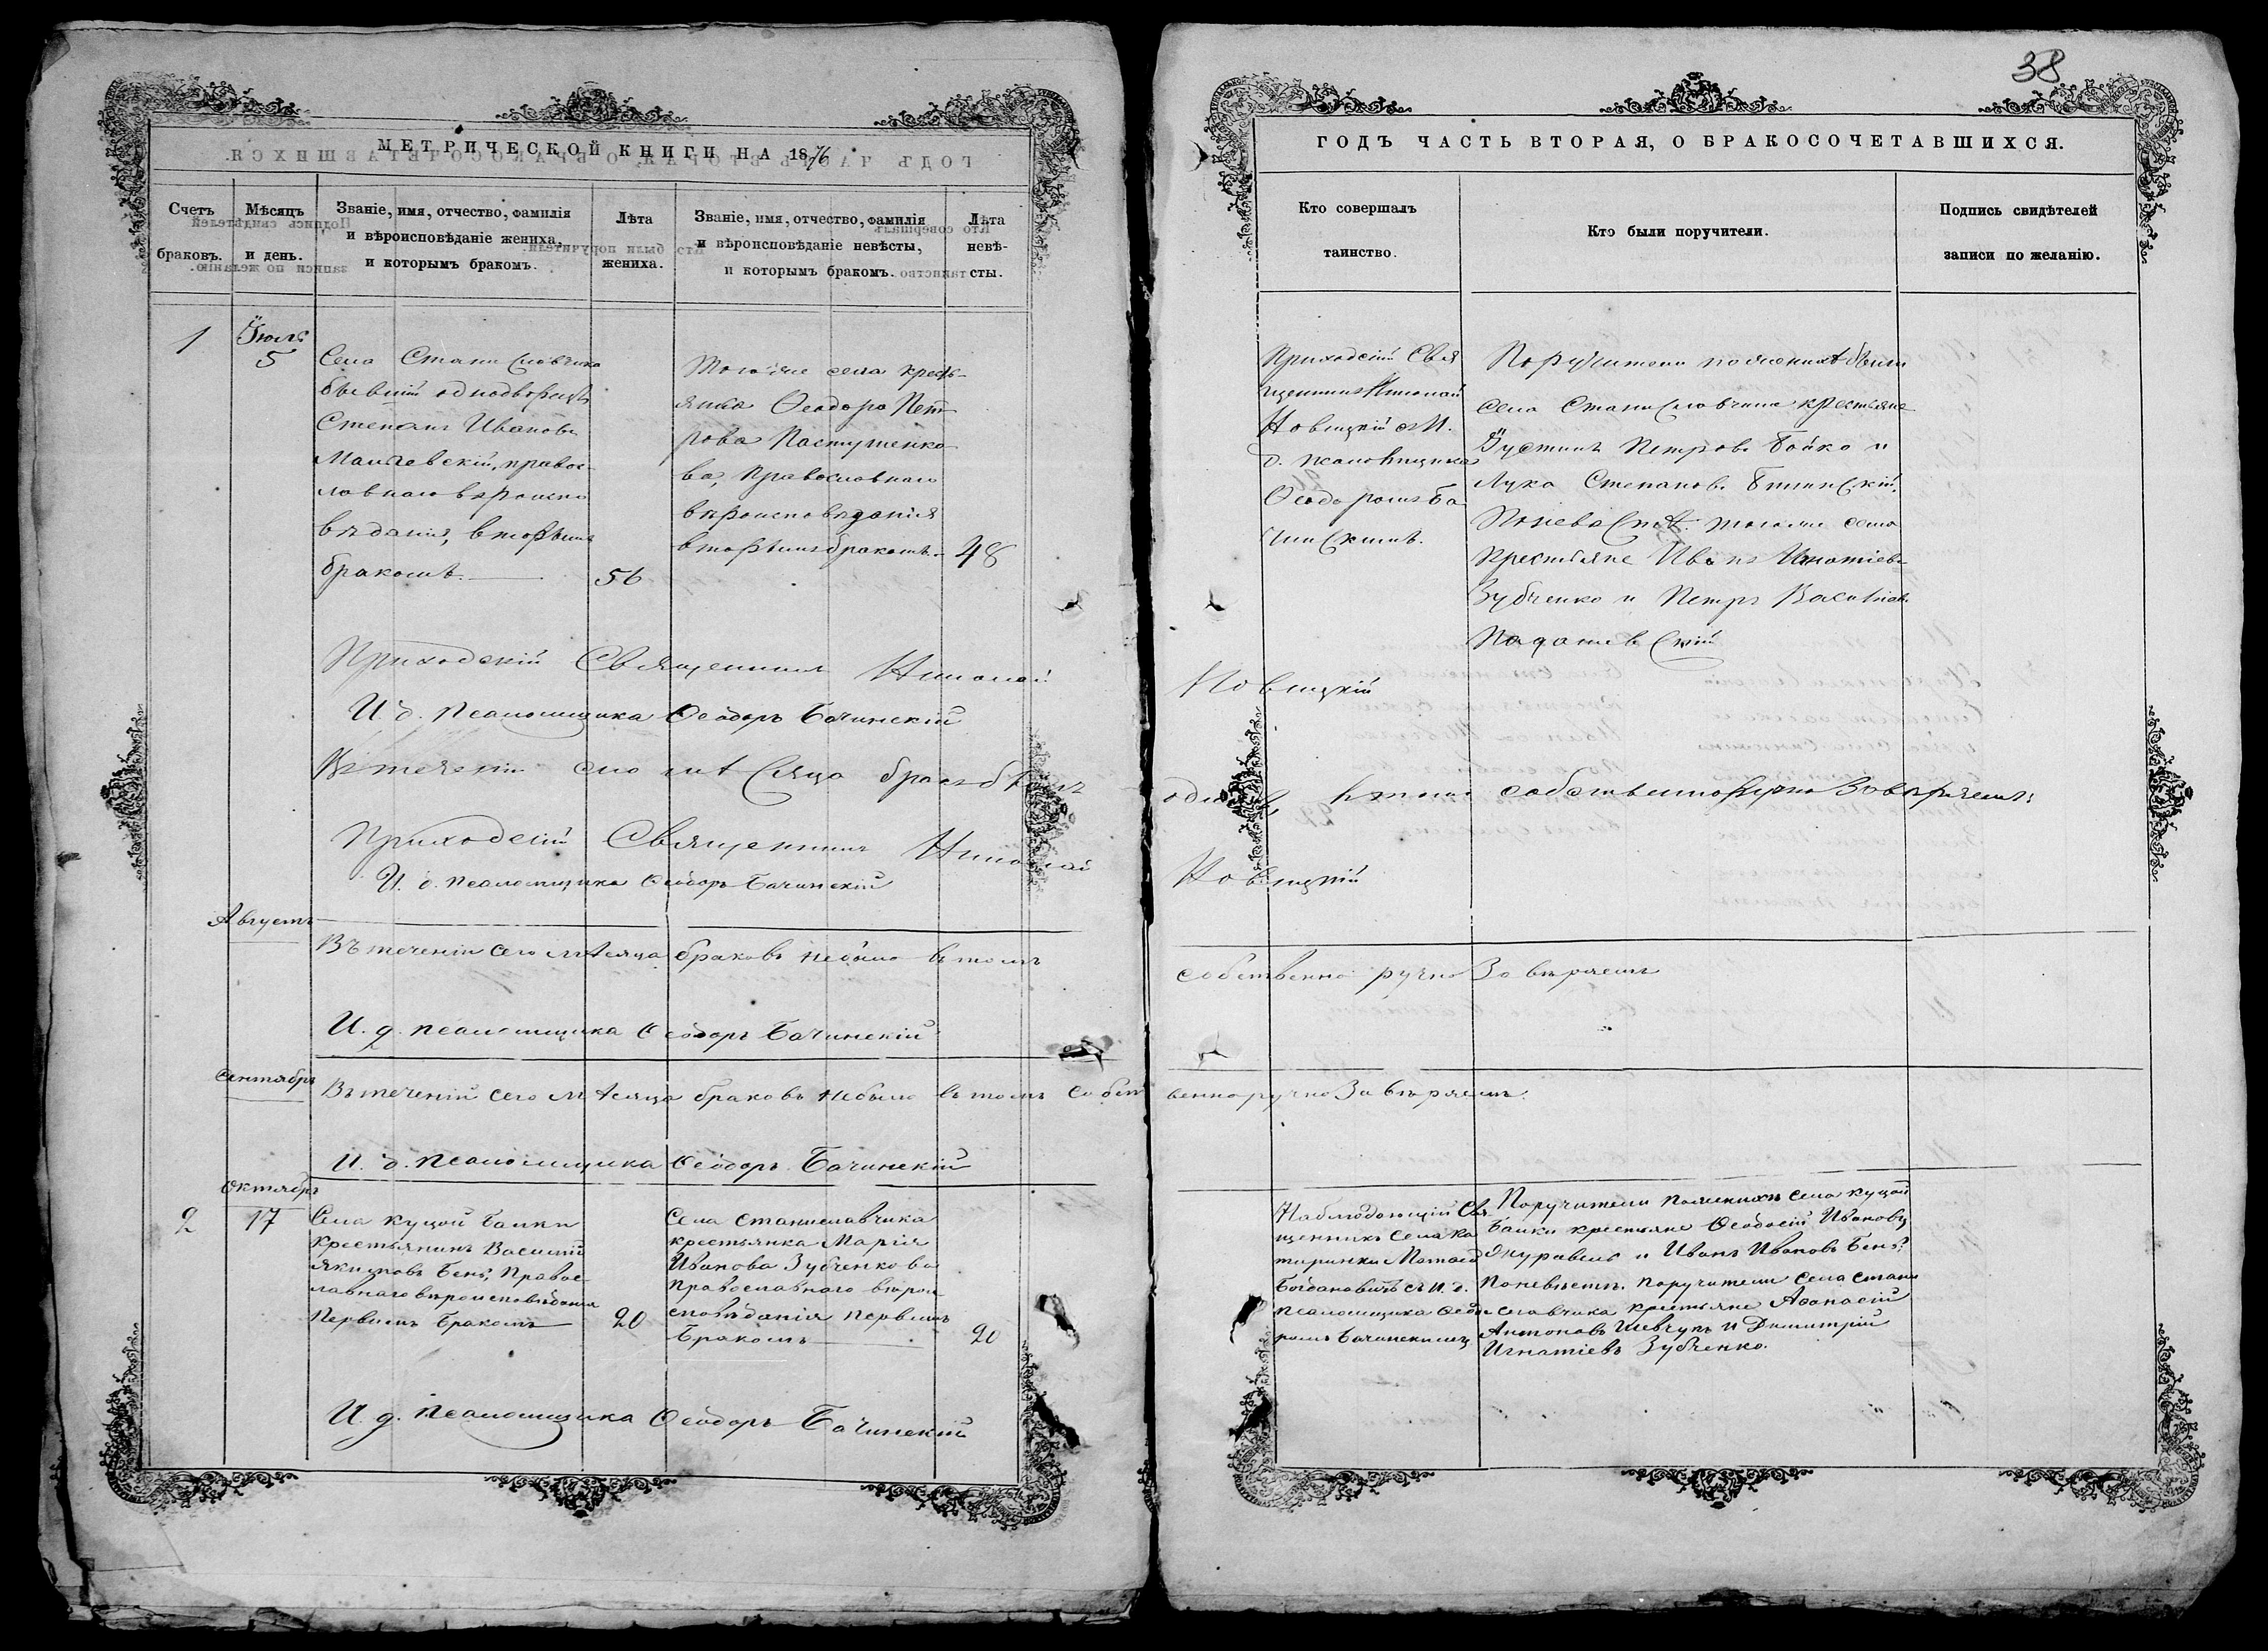 МЕТРИЧЕСКОЙ КНИГИ НА 1876
Счетъ браковъ.
Мѣсяцъ и день.
Званіе, имя, отчество, фамилія и вѣроисповѣданіе жениха, и которымъ бракомъ.
Лѣта жениха.
Званіе, имя, отчество, фамилія и вѣроисповѣданіе невѣсты, и которымъ бракомъ.
Лѣта невѣ-сты.
1
Іюль
5
Села Станиславчика
бывшій однодворецъ
Степанъ Ивановъ
правос-
лавнаго вѣроиспо
вѣданія, вторымъ
бракомъ.
56
Того же села кресть-
янка Ѳеодора Пет
рова Пастушенко
ва, православнаго
вѣроисповѣданія
вторымъ бракомъ.
48
Приходскій Священникъ Николай
И. д. псаломщика Ѳеодоръ Бачинскій
Въ теченіи сего мѣсяца бракъ былъ
Приходскій Священникъ Николай
И. д. псаломщика Ѳеодоръ Бачинскій
Августъ
Въ теченіи сего мѣсяца браковъ небыло въ томъ
И. д. псаломщика Ѳеодоръ Бачинскій
Сентябрь
Въ теченіи сего мѣсяца браковъ небыло въ томъ собст
И. д. псаломщика Ѳеодоръ Бачинскій
Октябрь
2
17
Села Куцой Балки
крестьянинъ Василій
Якимовъ Бень, Правос-
лавнаго вѣроисповѣданія
Первымъ Бракомъ
20
Села Станиславчика
крестьянка Марія
Иванова Зубченкова
Православнаго вѣрои
сповѣданія первымъ
Бракомъ
20
И. д. псаломщика Ѳеодоръ Бачинскій
38
ГОДЪ ЧАСТЬ ВТОРАЯ, О БРАКОСОЧЕТАВШИХСЯ.
Кто совершалъ таинство.
Кто были поручители.
Подпись свидѣтелей записи по желанію.
Приходскій Свя
щенникъ Николай
Новицкій съ И.
д. псаломщика
Ѳеодоромъ Ба
чинскимъ.
Поручители по женихѣ были
села Станиславчика крестьяне
Іустинъ Петровъ Бойко и
Лука Степановъ
По невѣстѣ. того же села
крестьяне Иванъ Игнатіевъ
Зубченко и Петръ
Новицкій
одинъ въ томъ собственноручно Завѣряемъ
Новицкій
собственно ручно Завѣряемъ
венноручно Завѣряемъ.
Наблюдающій Свя
щенникъ села Ка
таринки
Богдановичъ съ И. д.
псаломщика Ѳеодо
ромъ Бачинскимъ
Поручители по женихѣ села Куцой
Балки крестьяне Ѳеодосій Ивановъ
Журавель и Иванъ Ивановъ Бень.
По невѣстѣ. поручители села Стани
славчика крестьяне Аѳанасій
Антоновъ Шевчукъ и Димитрій
Игнатіевъ Зубченко.